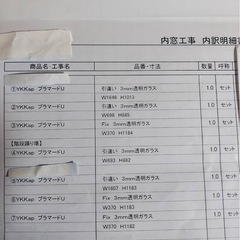 内窓工事 内訳明細書
商品名・工事名 品番・寸法 数量 呼称
①YKKap プラマードU 引違い 3mm透明ガラス 1.0 セット
W1698 H1013
②YKKap プラマードU 引違い 3mm透明ガラス 1.0 セット
W698 H685
③YKKap プラマードU Fix 3mm透明ガラス 1.0 セット
W370 H1184
【階段踊り場】
④YKKap プラマードU 引違い 3mm透明ガラス 1.0 セット
W693 H682
⑤YKKap プラマードU 引違い 3mm透明ガラス 1.0 セット
W1607 H1183
⑥YKKap プラマードU Fix 3mm透明ガラス 1.0 セット
W370 H1183
⑦YKKap プラマードU Fix 3mm透明ガラス 1.0 セット
W370 H1182